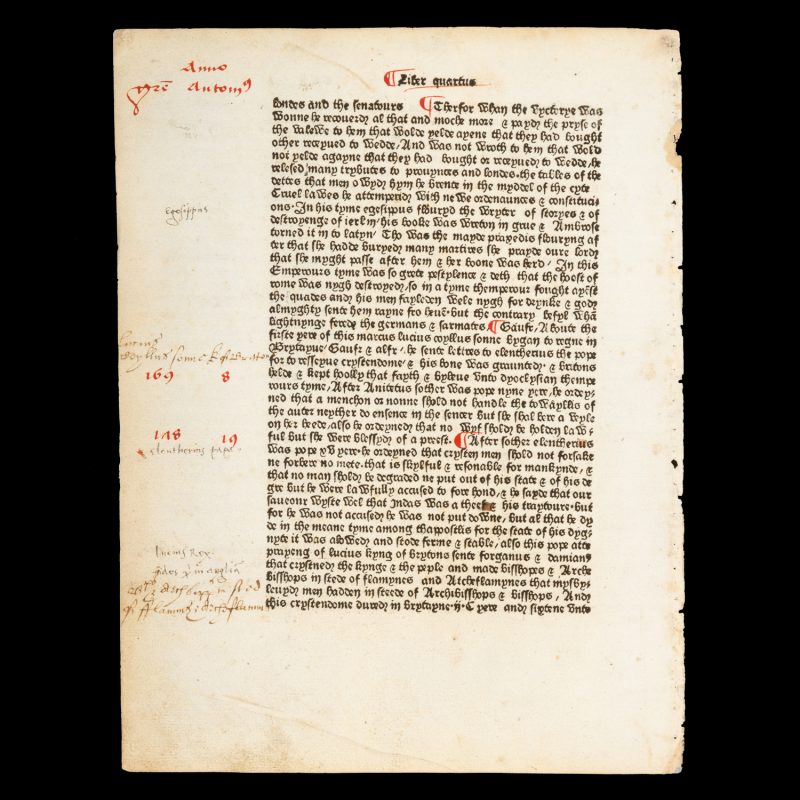 Anno
gre Antonij
¶ Liber quartus
londes and the senatours ¶ Therfor whan the vyctorye was
wonne he recouerd al that and moche more & payd the pryse of
the valewe to hem that wold yelde ayene that they had bought
other receyued to wedde, And was not wroth to hem that wold
not yelde agayne that they had bought or receyued to wedde, he
relesed many trybutes to prouynces and londes. the tables of the
dettes that men owyd hym he brente in the myddel of the cyte
Cruel lawes he attemperid with newe ordenaunces & constitucions
ons. In his tyme egesippus flouryd the wryter of storyes & of
destroyenge of ierlm/ his booke was wreton in grue & Ambrose
torned it in to latyn/ Tho was the mayde prayedis flouryng af
ter that she hadde buryed many martires she prayde oure lord
that she myght passe after hem & her boone was herd/ In this
Emperours tyme was so grete pestylence & deth that the hoost of
rome was nygh destroyed, so in a tyme themperour fought ayenst
the quades and his men fayleden wele nygh for drynke & god
almyghty sente hem rayne fro heuē. but the contrary befyl whā
lightnynge ferede the germans & sarmates. ¶ Gaufr, Aboute the
firste yere of this marcus lucius coyllus sonne bygan to regne in
Brytayne/ Gaufr & alfr/ he sente lettres to eleutherius the pope
for to resseyue crystendome & his bone was graunted/ & britons
helde & kept hoolly that fayth & byleue vnto dyoclysian thempe
rours tyme, After Anicetus sother was pope nyne yere, he ordey
ned that a menchon or nonne shold not handle the towayllis of
the auter neyther do ensence in the senser but she shal bere a vyle
on her heede, also he ordeyned that no wyf shold be holden law
ful but she were blessyd of a preest. ¶ After sother eleutherius
was pope xv yere. he ordeyned that crysten men shold not forsake
ne forbere no mete. that is skylful & resonable for mankynde, &
that no man shold be degraded ne put out of his state & of his de
gre but he were lawfully accused to fore hond, & he sayde that our
saueour wyste wel that Iudas was a theef & his traytoure. but
for he was not accused he was not put downe, but al that he dy
de in the meane tyme among thappostlis for the state of his dyg
nyte it was alowed and stode ferme & stable, also this pope atte
prayeng of lucius kyng of brytons sente forganus & damian
that crystned the kynge & the peple and made bisshopes & Arche
bisshops in stede of flamynes and Archeflamynes that mysby
leuyd men hadden in steede of Archibisshops & bisshops, And
this crystendome dured in brytayne .ij. C yere and sixtene vnto
egesippus
Lucius
Coyllus sonne
169 8
178 19
eleutherius papa
lucius Rex